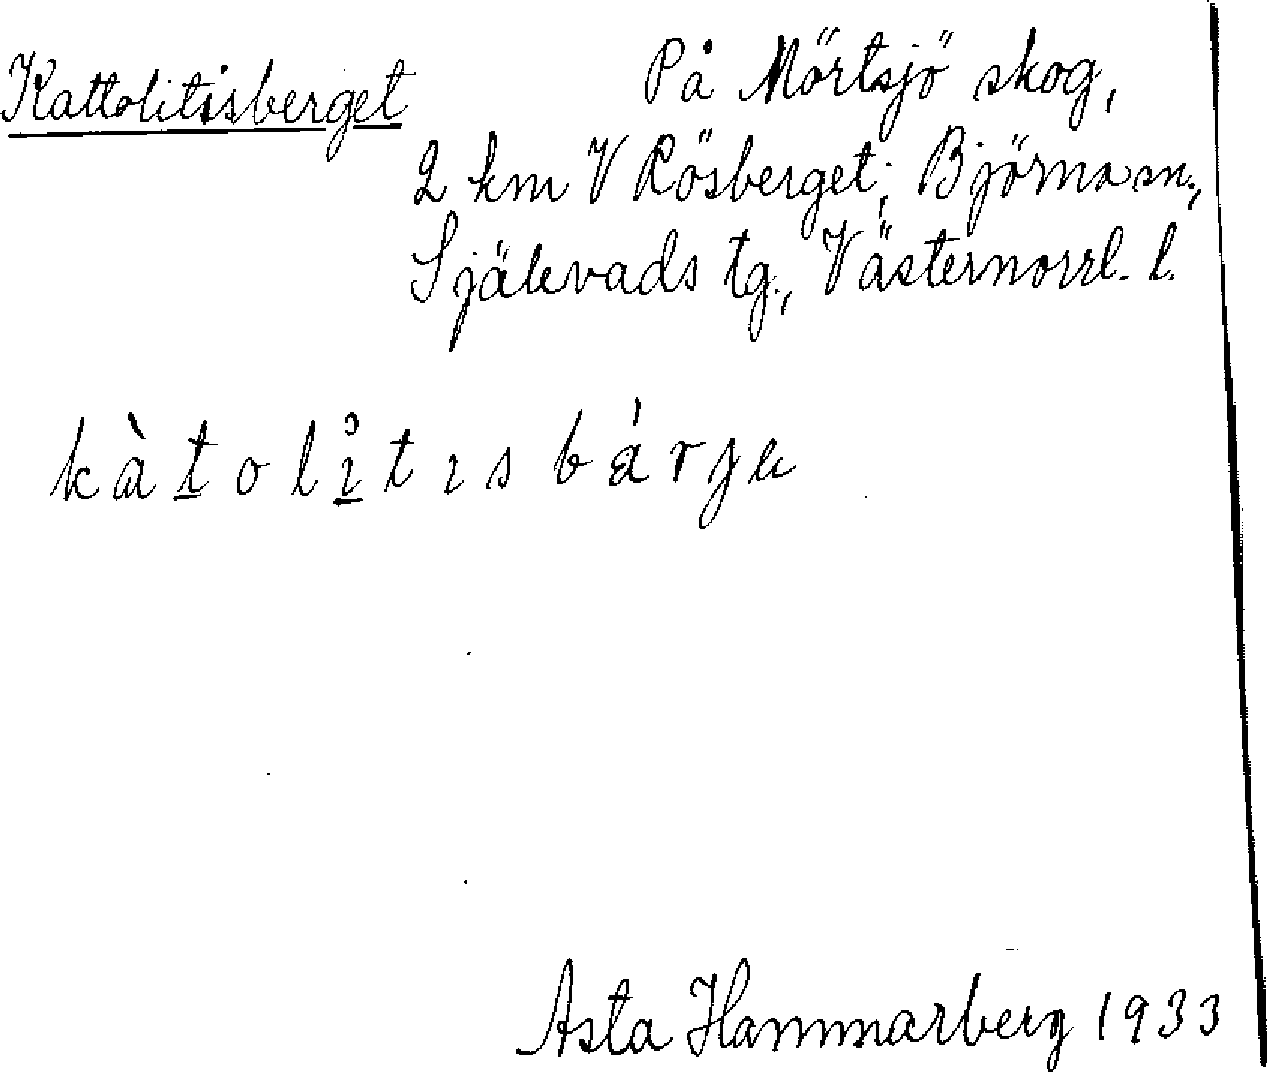 Kattolitisberget På Mörtsjö skog,
2 km V Rösberget; Björna sn.,
Själevads tg., Västernorrl. l.
kàtolı̊tısbárjɐ
Asta Hammarberg 1933